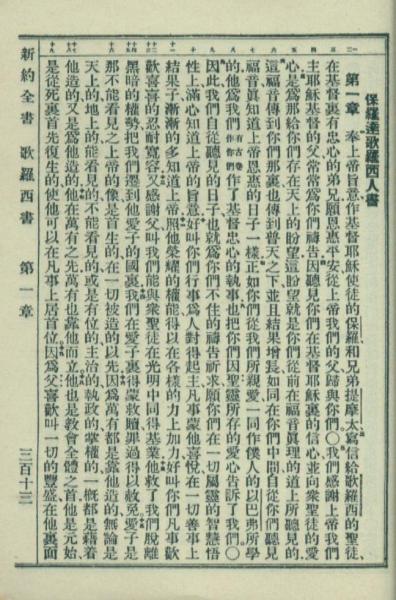 保羅達歌羅西人書
第一章 奉上帝旨意作基督耶穌使徒的保羅和兄弟提摩太寫信給歌羅西的聖徒
在基督裏有忠心的弟兄願恩惠平安從上帝我們的父歸與你們〇我們感謝上帝我們
主耶穌基督的父常常爲你們禱告因聽見你們在基督耶穌裏的信心並向衆聖徒的愛
心是爲那給你們存在天上的盼望這盼望就是你們從前在福音眞理的道上所聽見的
這福音傳到你們那裏也傳到普天之下並且結果增長如同在你們中間自從你們聽見
福音眞知道上帝恩惠的日子一樣正如你們從我們所親愛一同作僕人的以巴弗所學
的他爲我們有古卷作你們作了基督忠心的執事也把你們因聖靈所存的愛心告訴了我們〇
因此我們自從聽見的日子也就爲你們不住的禱告祈求願你們在一切屬靈的智慧悟
性上滿心知道上帝的旨意好叫你們行事爲人對得起主凡事蒙他喜悅在一切善事上
結果子漸漸的多知道上帝照他榮耀的權能得以在各樣的力上加力好叫你們凡事歡
歡喜喜的忍耐寬容又感謝父叫我們能與衆聖徒在光明中同得基業他救了我們脫離
黑暗的權勢把我們遷到他愛子的國裏我們在愛子裏得蒙救贖罪過得以赦免愛子是
那不能看見之上帝的像是首生的在一切被造的以先因爲萬有都是靠他造的無論是
天上的地上的能看見的不能看見的或是有位的主治的執政的掌權的一槪都是藉着
他造的又是爲他造的他在萬有之先萬有也靠他而立他也是教會全體之首他是元始
是從死裏首先復生的使他可以在凡事上居首位因爲父喜歡叫一切的豐盛在他裏面
新約全書 歌羅西書 第一章 三百十三